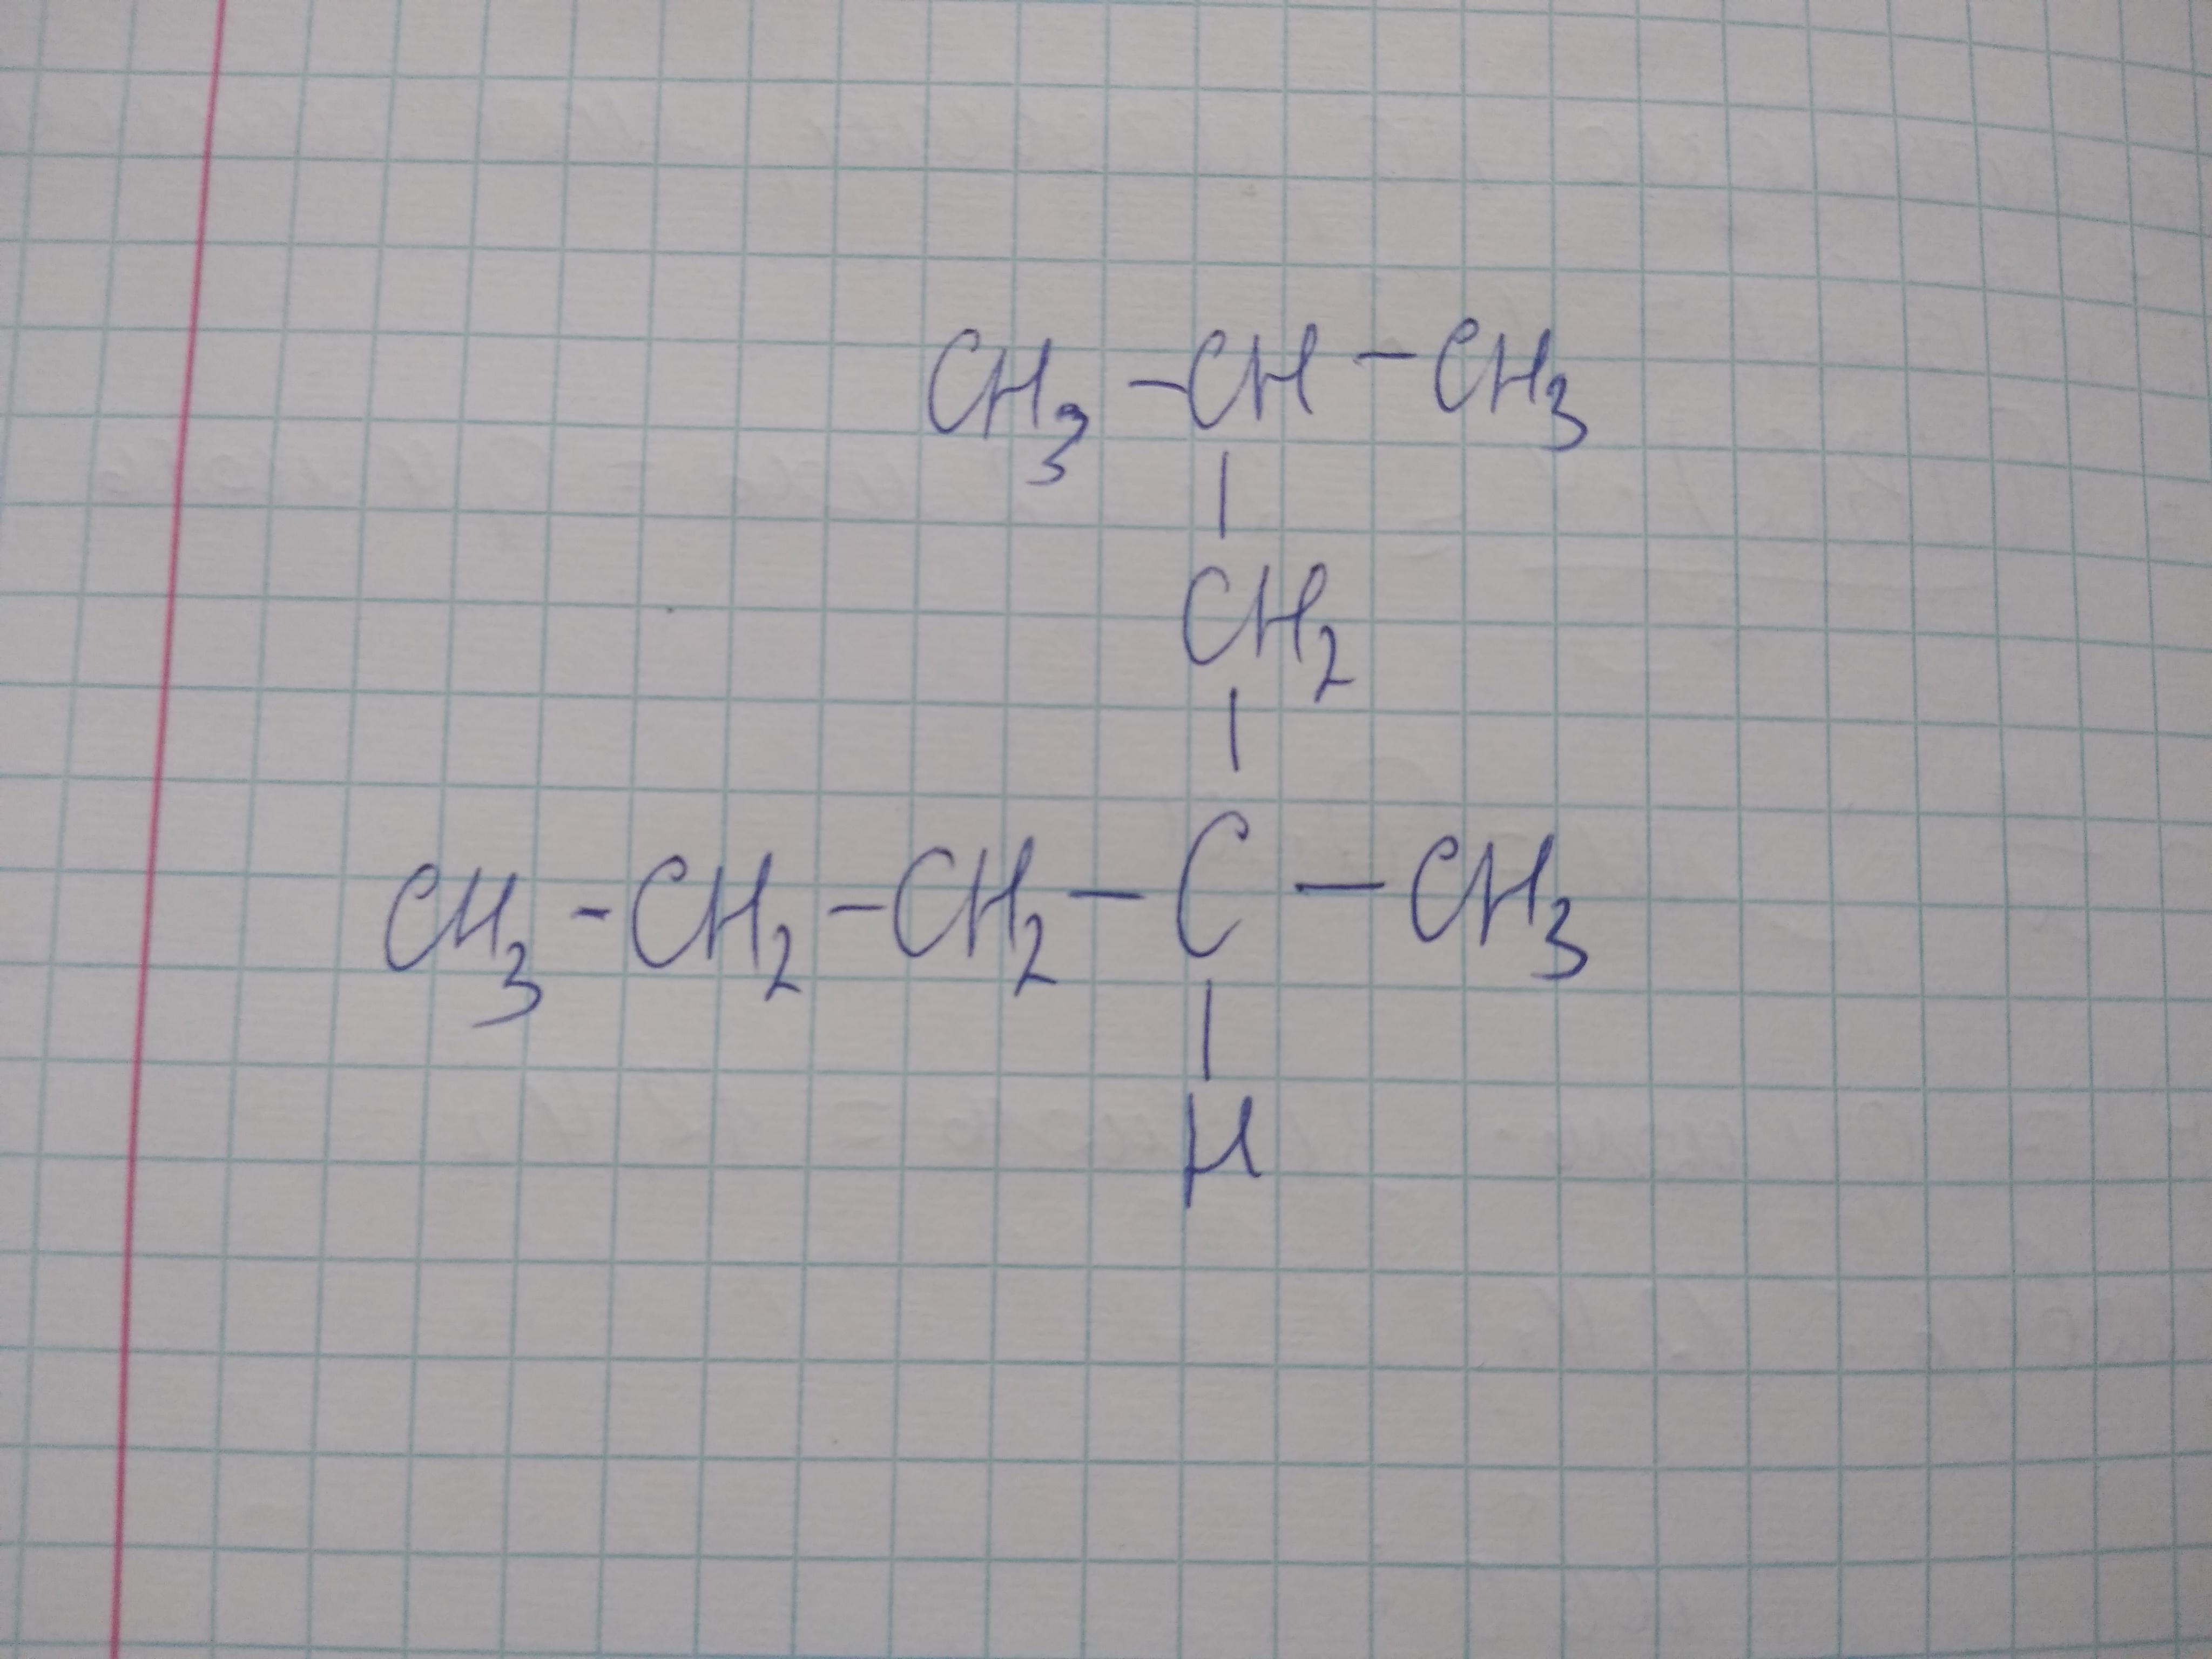 CH3 - CH - CH3
|
CH2
|
CH3 - CH2 - CH2 - C - CH3
|
H